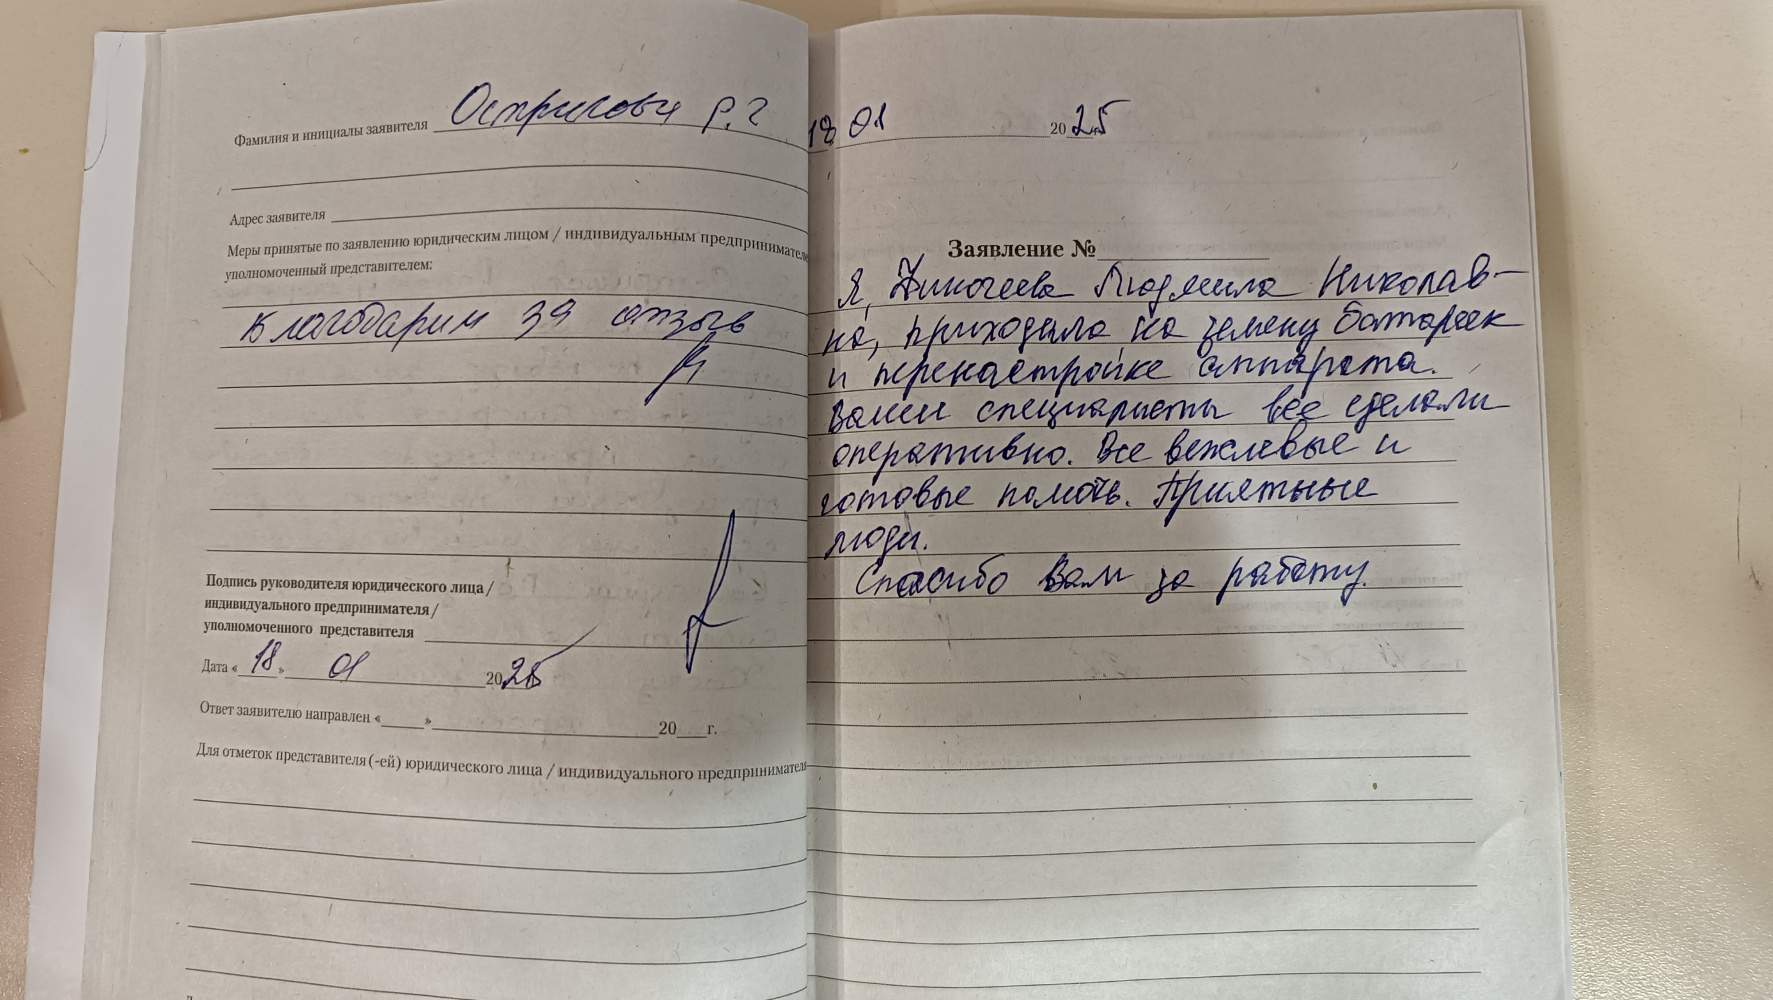 Фамилия и инициалы заявителя Острикова Р. Г
Адрес заявителя
Меры принятые по заявлению юридическим лицом / индивидуальным предпринимателе
уполномоченный представителем:
Благодарим за отзыв
Подпись руководителя юридического лица /
индивидуального предпринимателя /
уполномоченного представителя
Дата «18» 01 2025
Ответ заявителю направлен «____» 20___г.
Для отметок представителя(-ей) юридического лица / индивидуального предпринимателя
18 01 2025
Заявление №
Я, Людмила Николав-
на, приходила на замену батареек
и перенастройке аппарата.
Ваши специалисты все сделали
оперативно. Все вежлевые и
готовые помочь. Приятные
люди.
Спасибо Вам за работу.